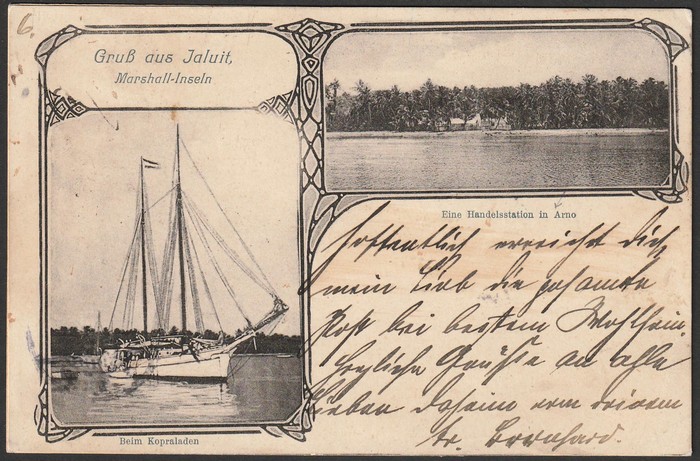 6.
Gruß aus Jaluit,
Marshall-Inseln
Eine Handelsstation in Arno
Hoffentlich erreicht Dich,
mein Lieb die gesamte
Post bei bestem Wohlsein.
Herzliche Grüße an alle
Lieben daheim von deinem
tr. Bernhard.
Beim Kopraladen